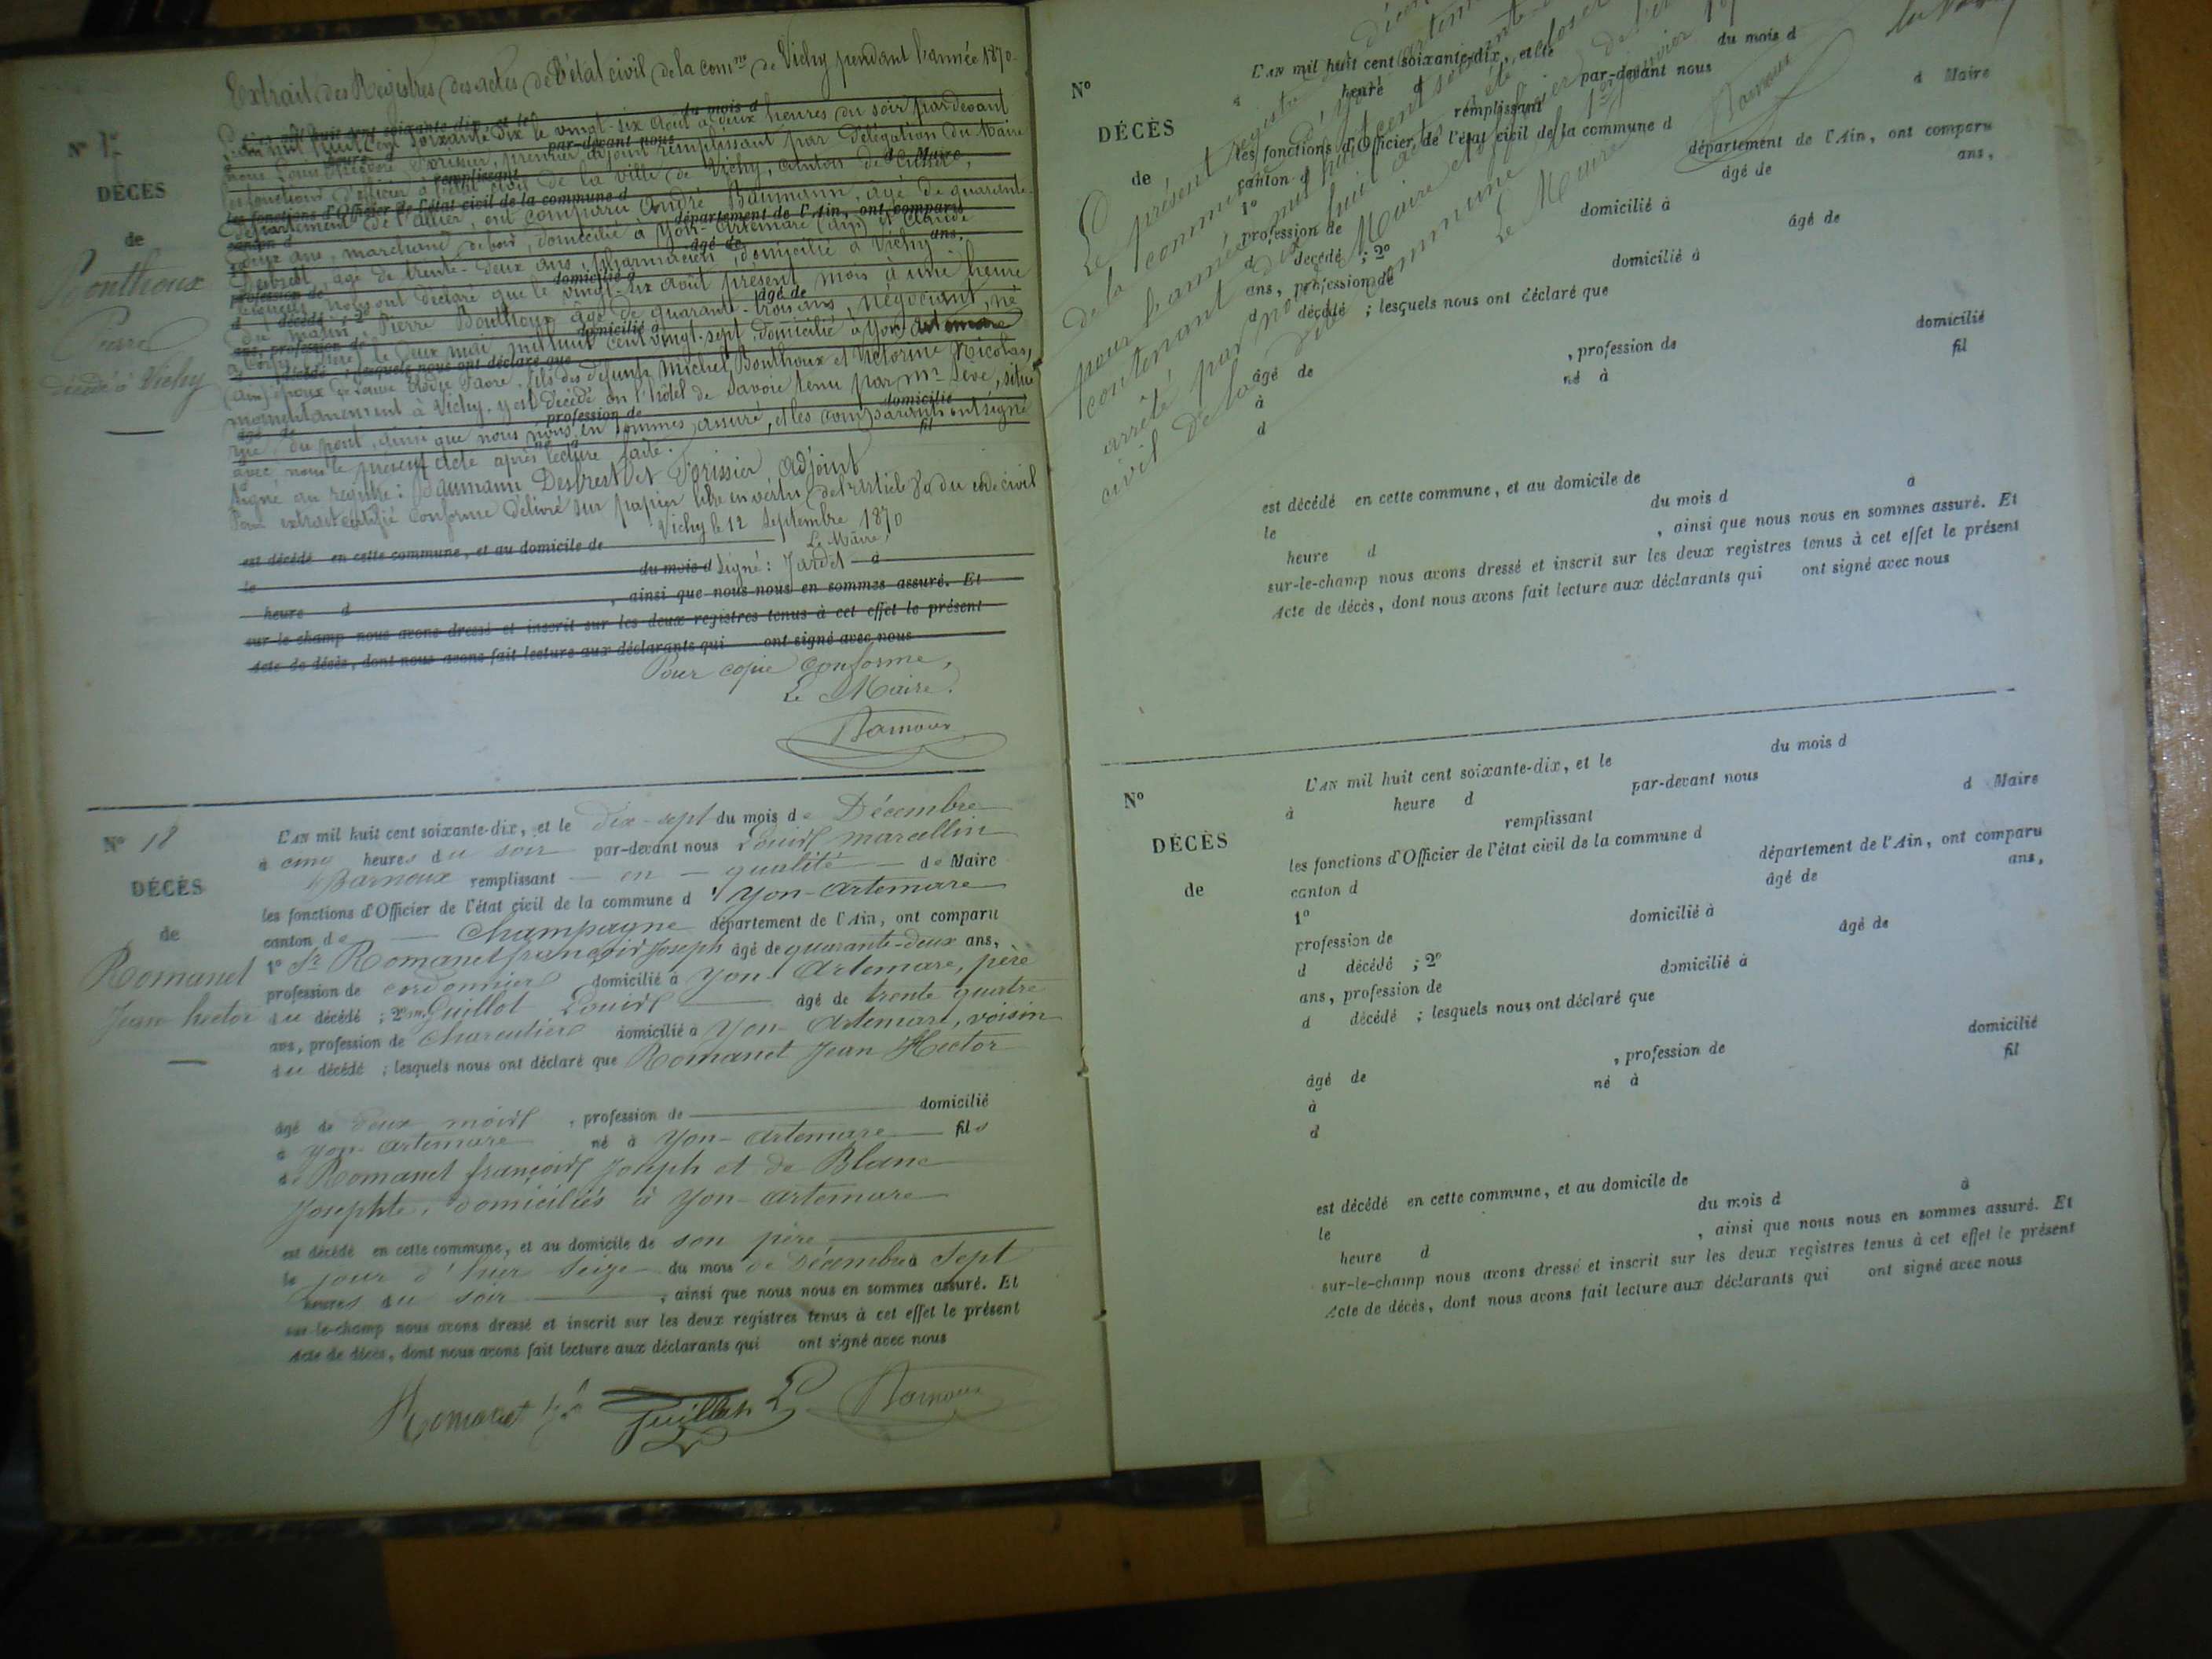 Extrait des Registres des actes de l'état civil de la comne de Vichy pendant l'année 1870.
N° 17
DÉCÈS
de
Bonthoux
Pierre
décédé à Vichy
L'an mil huit cent soixante dix le vingt-six août à deux heures du soir pardevant
nous Louis Théodore Forissier, premier adjoint remplissant par délégation du Maire
les fonctions d'officier de l'état civil de la ville de Vichy, canton de Cusset,
département de l'allier, ont comparu André Baumann, âgé de quarante-
deux ans, marchand de bois, domicilié à Yon-Artemare (ain) et Claude
Desbrest, âgé de trente-deux ans, pharmacien, domicilié à Vichy
lesquels nous ont déclaré que le vingt-six août présent mois à une heure
du matin, Pierre Bonthoux âgé de quarante-trois ans, négociant, né
à le deux mai mil huit cent vingt-sept, domicilié à Yon-Artemare
(ain) époux de Elodie Favre, fils des défunts Michel Bonthoux et Victorine Nicolas,
momentanément à Vichy, y est décédé en l'hôtel de Savoie tenu par Mr Sève, situé
rue du pont, ainsi que nous nous en sommes assuré, et les comparants ont signé
avec nous le présent acte après lecture faite.
Signé au registre: Baumann Desbrest et Forissier Adjoint
Pour extrait certifié conforme délivré sur papier libre en vertu de l'article 80 du code civil
Vichy le 12 Septembre 1870
Le Maire,
est décédé en cette commune, et au domicile de
le du mois d Signé: Jardet à
heure d , ainsi que nous nous en sommes assuré. Et
sur-le-champ nous avons dressé et inscrit sur les deux registres tenus à cet effet le présent
Acte de décès, dont nous avons fait lecture aux déclarants qui ont signé avec nous
Pour copie conforme,
Le Maire.
Barnoux
N° 18
DÉCÈS
de
Romanet
Jean hector
L'AN mil huit cent soixante-dix, et le dix-sept du mois de Décembre
à cinq heures du soir par-devant nous Louis marcellin
Barnoux remplissant en qualité de Maire
les fonctions d'Officier de l'état civil de la commune d'Yon-Artemare
canton de Champagne département de l'Ain, ont comparu
1° Sr Romanet françois Joseph âgé de quarante-deux ans,
profession de cordonnier domicilié à Yon-Artemare, père
du décédé ; 2° m. Guillot Louis âgé de trente quatre
ans, profession de charcutier domicilié à Yon-Artemare, voisin
du décédé ; lesquels nous ont déclaré que Romanet Jean Hector
âgé de deux mois , profession de domicilié
à Yon-Artemare né à Yon-Artemare fils
de Romanet françois Joseph et de Blanc
Josephte, domiciliés à Yon-Artemare
est décédé en cette commune, et au domicile de son père
le jour d'hier seize du mois de Décembre à sept
heures du soir , ainsi que nous nous en sommes assuré. Et
sur-le-champ nous avons dressé et inscrit sur les deux registres tenus à cet effet le présent
Acte de décès, dont nous avons fait lecture aux déclarants qui ont signé avec nous
Romanet Guillot L Barnoux
Le présent registre
de la commune d'Yon-Artemare
pour l'année mil huit cent soixante
contenant dix huit actes a été clos et
arrêté par nous Maire et officier de l'état
civil de la dite commune le 1er janvier
Le Maire
Barnoux
N°
DÉCÈS
de
L'AN mil huit cent soixante-dix, et le du mois d
à heure d par-devant nous
remplissant d Maire
les fonctions d'Officier de l'état civil de la commune d
canton d département de l'Ain, ont comparu
1° âgé de ans,
profession de domicilié à
d décédé ; 2° âgé de
ans, profession de domicilié à
d décédé ; lesquels nous ont déclaré que
âgé de , profession de domicilié
à né à fil
d
est décédé en cette commune, et au domicile de
le du mois d à
heure d , ainsi que nous nous en sommes assuré. Et
sur-le-champ nous avons dressé et inscrit sur les deux registres tenus à cet effet le présent
Acte de décès, dont nous avons fait lecture aux déclarants qui ont signé avec nous
N°
DÉCÈS
de
L'AN mil huit cent soixante-dix, et le du mois d
à heure d par-devant nous
remplissant d Maire
les fonctions d'Officier de l'état civil de la commune d
canton d département de l'Ain, ont comparu
1° âgé de ans,
profession de domicilié à
d décédé ; 2° âgé de
ans, profession de domicilié à
d décédé ; lesquels nous ont déclaré que
âgé de , profession de domicilié
à né à fil
d
est décédé en cette commune, et au domicile de
le du mois d à
heure d , ainsi que nous nous en sommes assuré. Et
sur-le-champ nous avons dressé et inscrit sur les deux registres tenus à cet effet le présent
Acte de décès, dont nous avons fait lecture aux déclarants qui ont signé avec nous